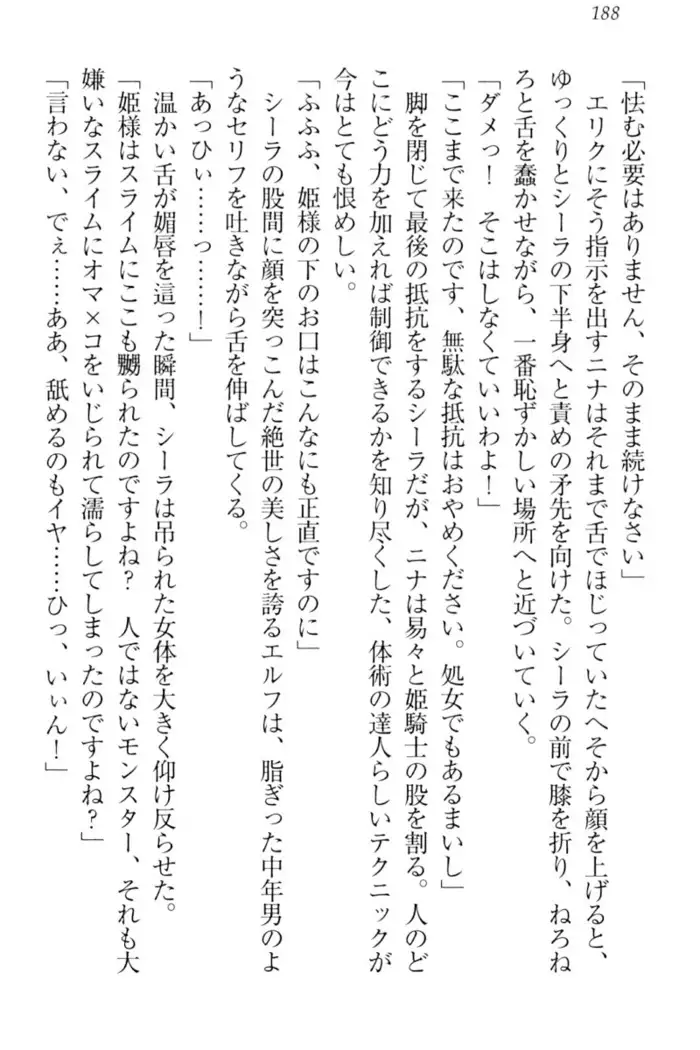 188
「怯む必要はありません、そのまま続けなさい」
エリクにそう指示を出すニナはそれまで舌でほじっていたへそから顔を上げると、
ゆっくりとシーラの下半身へと責めの矛先を向けた。シーラの前で膝を折り、ねろね
ろと舌を蠢かせながら、一番恥ずかしい場所へと近づいていく。
「ダメっ！　そこはしなくていいわよ！」
「ここまで来たのです、無駄な抵抗はおやめください。処女でもあるまいし」
脚を閉じて最後の抵抗をするシーラだが、ニナは易々と姫騎士の股を割る。人のど
こにどう力を加えれば制御できるかを知り尽くした、体術の達人らしいテクニックが
今はとても恨めしい。
「ふふふ、姫様の下のお口はこんなにも正直ですのに」
シーラの股間に顔を突っこんだ絶世の美しさを誇るエルフは、脂ぎった中年男のよ
うなセリフを吐きながら舌を伸ばしてくる。
「あっひぃ……っ……！」
温かい舌が媚唇を這った瞬間、シーラは吊られた女体を大きく仰け反らせた。
「姫様はスライムにここも嬲られたのですよね？　人ではないモンスター、それも大
嫌いなスライムにオマ×コをいじられて濡らしてしまったのですよね？」
「言わない、でぇ……ああ、舐めるのもイヤ……ひっ、いぃん！」